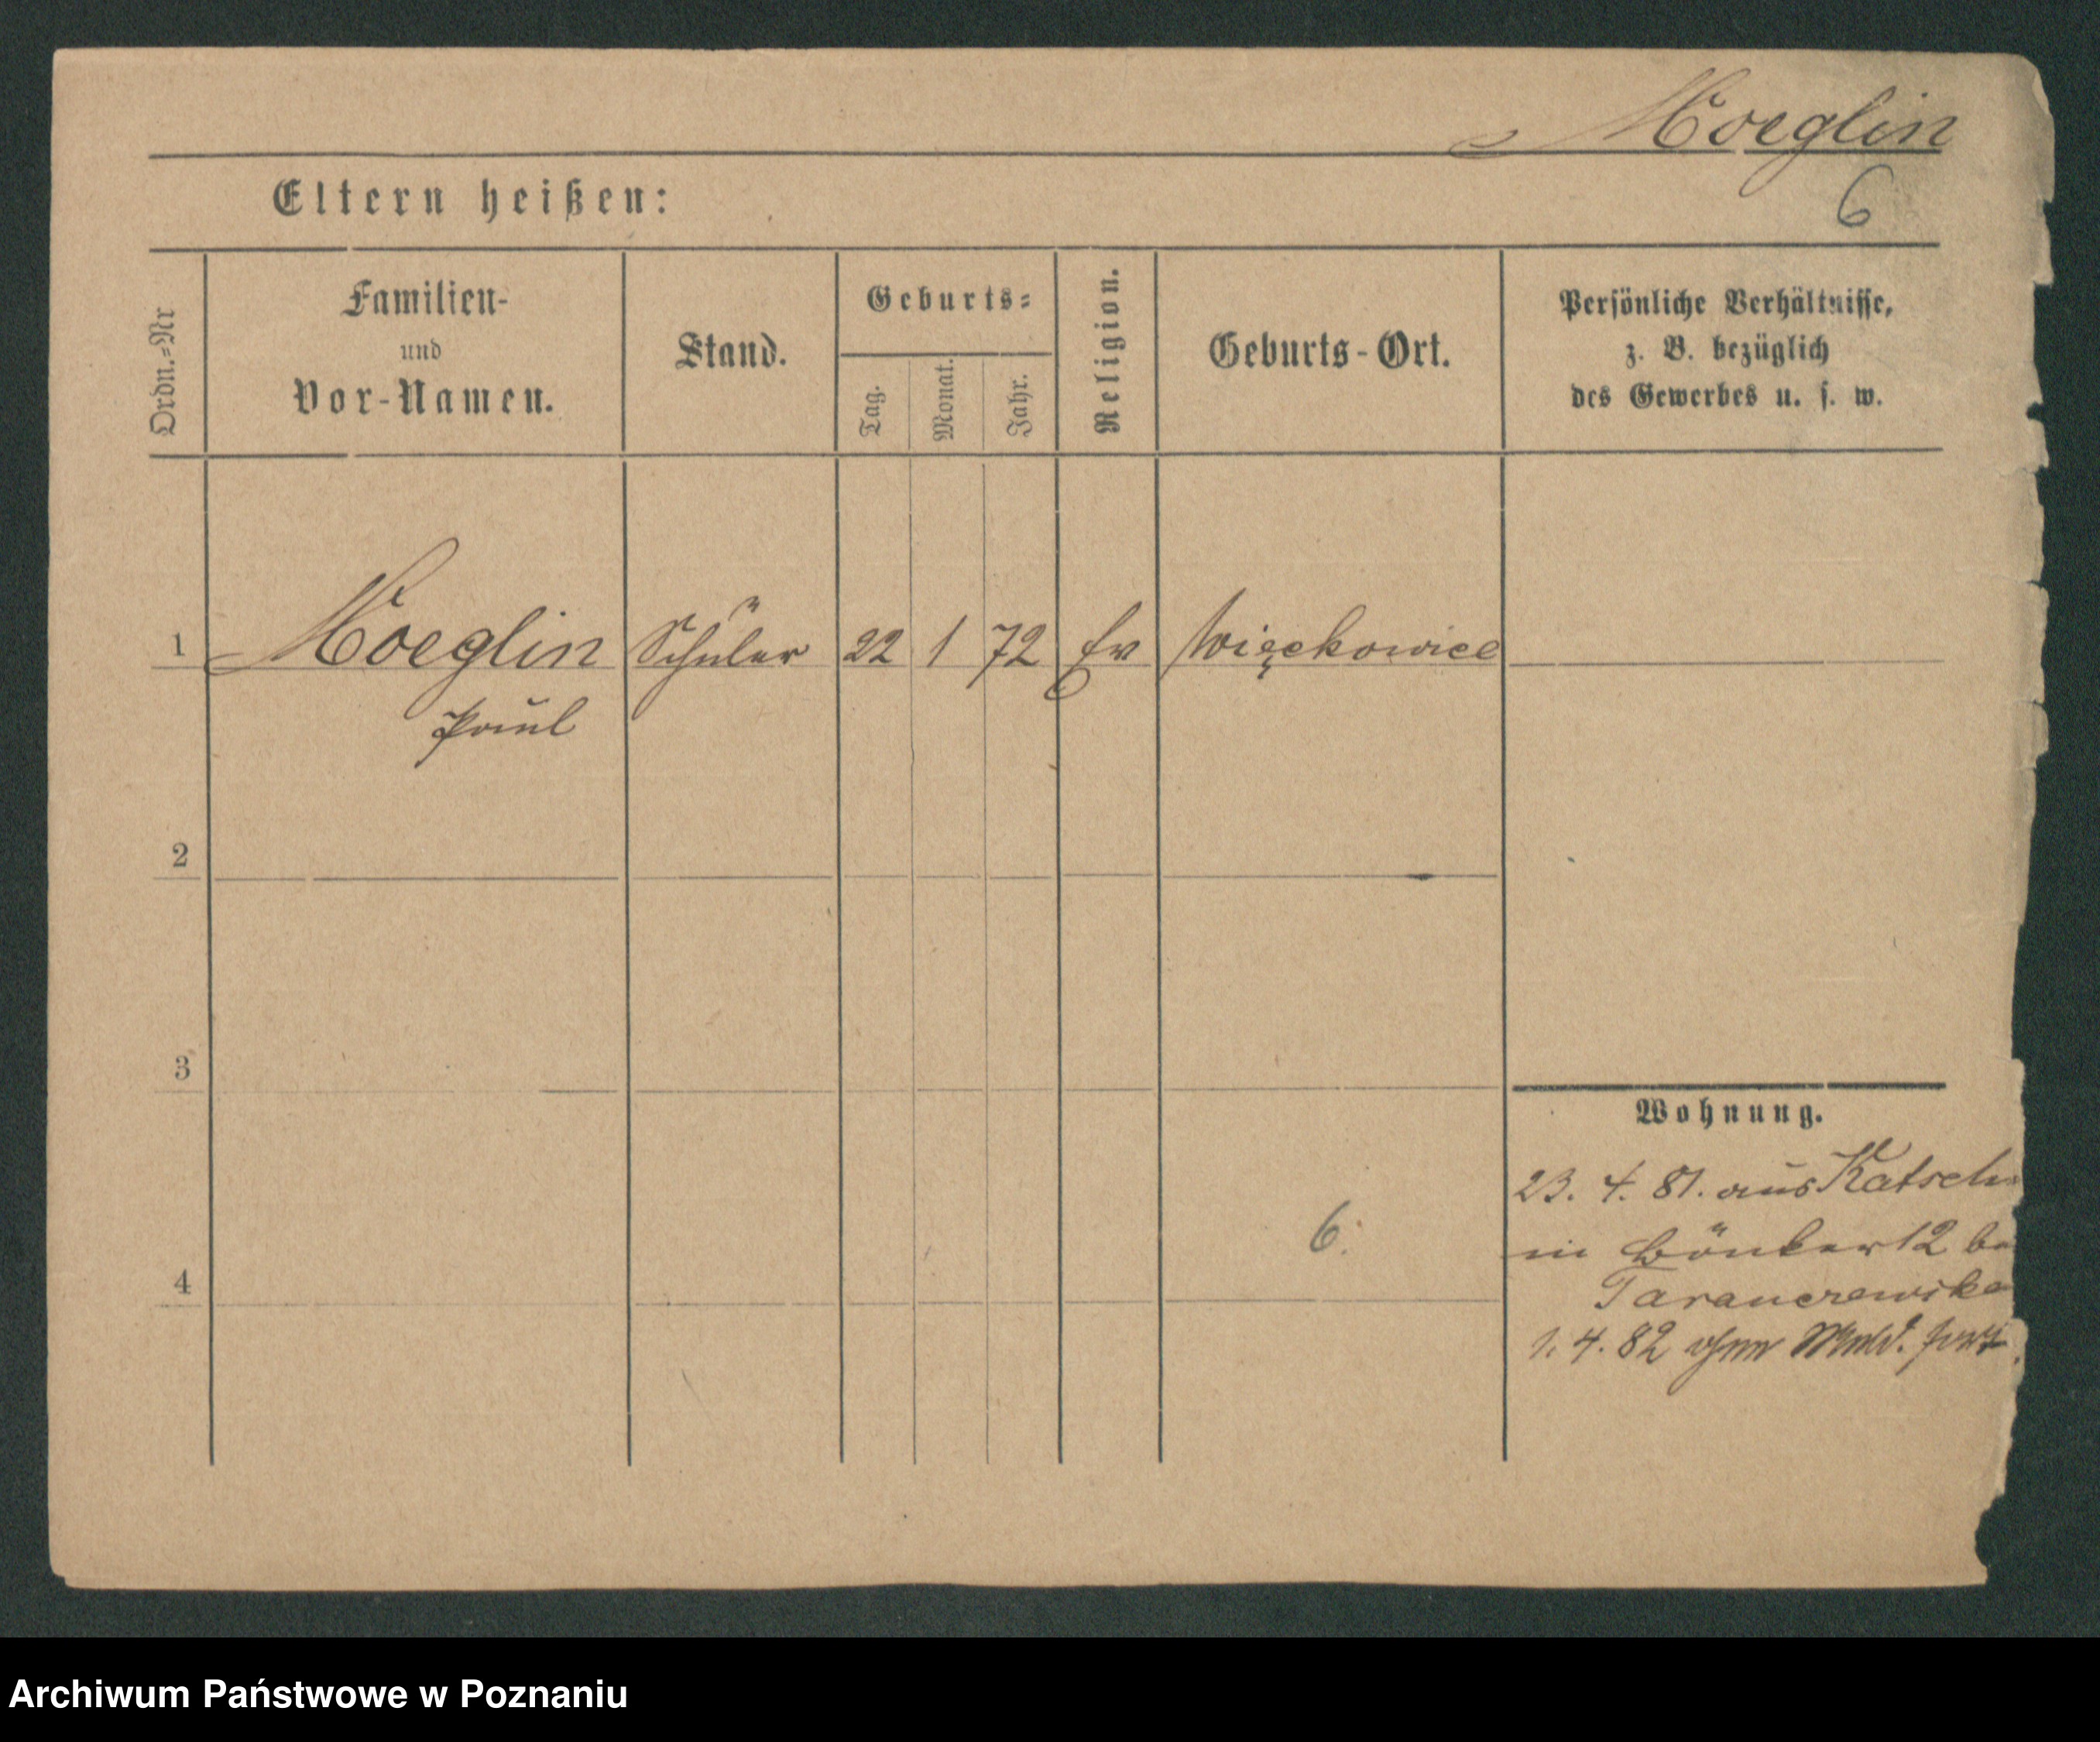 Moeglin
Eltern heißen:
6
Ordn.=Nr
Familien-
und
Vor-Namen.
Stand.
Geburts=
Tag.
Monat.
Jahr.
Religion.
Geburts-Ort.
Persönliche Verhältnisse,
z. B. bezüglich
des Gewerbes u. s. w.
1 Moeglin Schüler 22 1 72 Ev Więckowice
Paul
2
3
Wohnung.
23. 4. 81. aus Katsch
6.
in 12 be
4
1. 4. 82 ohne Meld. fort
Archiwum Państwowe w Poznaniu